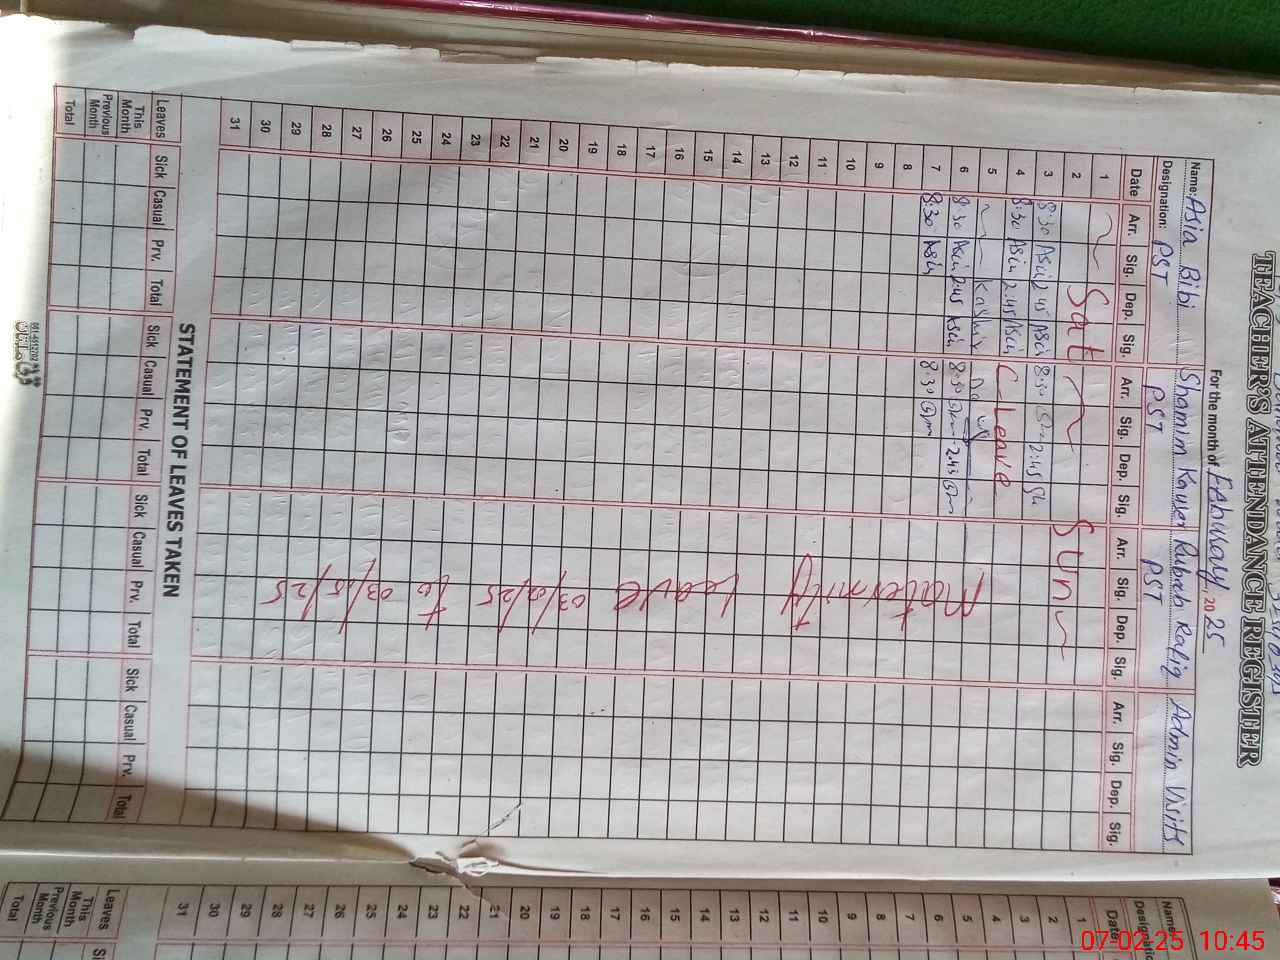 TEACHER'S ATTENDANCE REGISTER
For the month of Febuuray, 2025
Name: Asia Bibi Shamim Kauser Rubab Rafiq Admin Visits
Designation: PST PST PST
Date Arr. Sig. Dep. Sig. Arr. Sig. Dep. Sig. Arr. Sig. Dep. Sig. Arr. Sig. Dep. Sig.
1 Sat
2 Sun
3 8:30 Asia 2:45 Asia 8:30 2:45
4 8:30 Asia 2:45 Asia C-Leave
5 Kashmir Day
6 8:30 Asia 2:45 Asia 8:30 2:45
7 8:30 Asia 8:30
8
9
10
11
12
13
14
15
16
17
18
19
20
21
22
23
24
25
26
27
28
29
30
31
Maternity Leave 03/02/25 to 03/5/25
STATEMENT OF LEAVES TAKEN
Leaves Sick Casual Prv. Total Sick Casual Prv. Total Sick Casual Prv. Total Sick Casual Prv. Total
This Month
Previous Month
Total
Name
Date
1
2
3
4
5
6
7
8
9
10
11
12
13
14
15
16
17
18
19
20
21
22
23
24
25
26
27
28
29
30
31
Leaves
This Month
Previous Month
Total
07-02-25 10:45